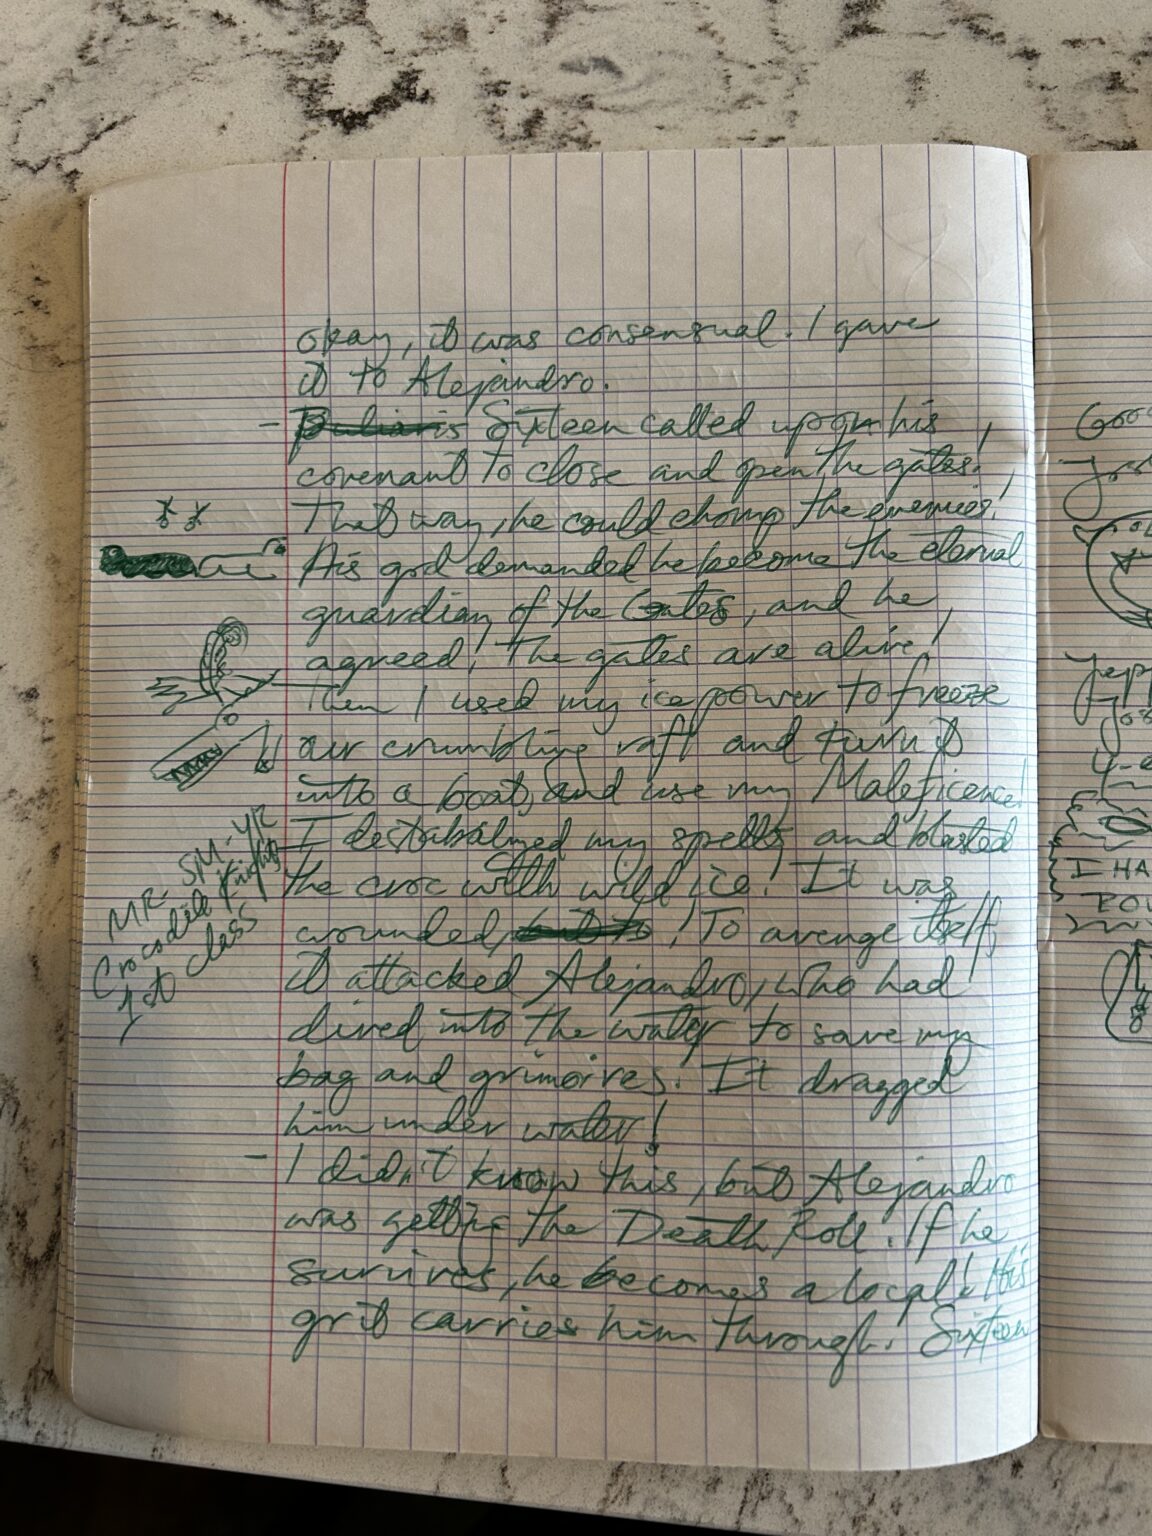 okay, it was consensual. I gave
it to Alejandro.
- Sixteen called upon his
covenant to close and open the gates!
That way, he could chomp the enemies!
His god demanded he become the eternal
guardian of the Gates, and he
agreed! The gates are alive!
Then I used my ice power to freeze
our crumbling raft and turn it
into a boat, and use my Maleficence!
I destabalized my spells and blasted
the croc with wild ice! It was
wounded, ! To avenge itself,
it attacked Alejandro, who had
dived into the water to save my
bag and grimoires! It dragged
him under water!
- I didn't know this, but Alejandro
was getting the Death Roll. If he
survives, he becomes a local! His
grit carries him through. Sixteen
MR. SM-YR
Crocodile Knight
1st class
I HA